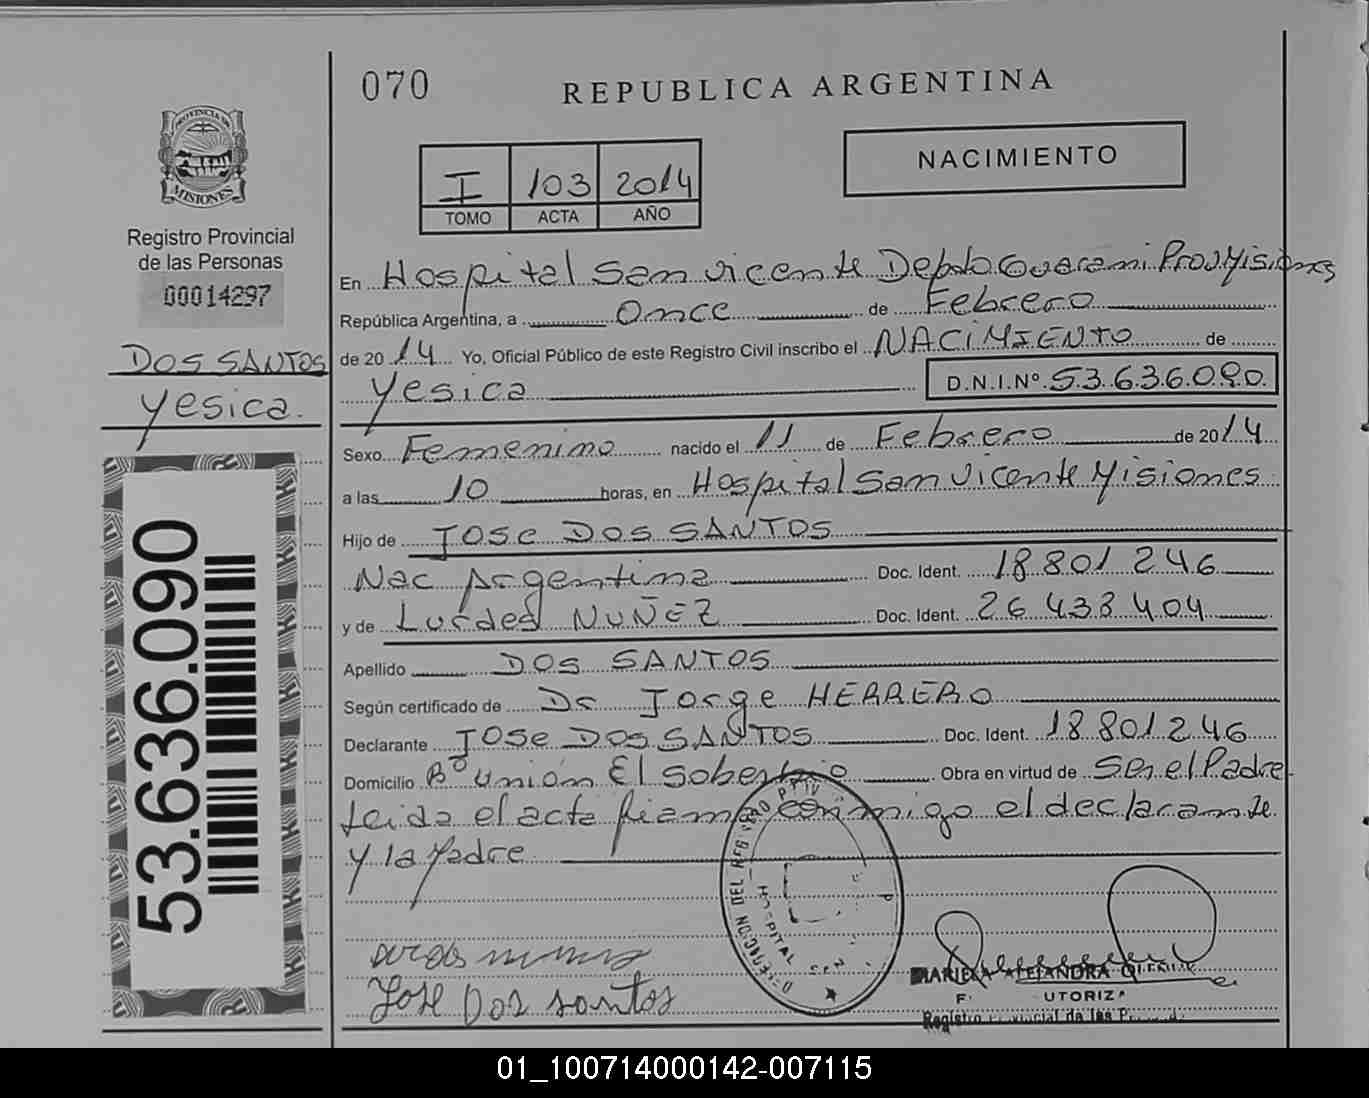 070
REPUBLICA ARGENTINA
NACIMIENTO
I 103 2014
TOMO ACTA AÑO
PROVINCIA DE
MISIONES
Registro Provincial
de las Personas
00014297
DOS SANTOS
Yesica.
53.636.090
En Hospital San Vicente Depto Guarani Prov Misiones
República Argentina, a Once de Febrero
de 2014 Yo, Oficial Público de este Registro Civil inscribo el NACIMIENTO de
Yesica D.N.I.Nº 53.636.090.
Sexo Femenino nacido el 11 de Febrero de 2014
a las 10 horas, en Hospital San Vicente Misiones
Hijo de JOSE DOS SANTOS
Nac Argentina Doc. Ident. 18.801.246
y de Lurdes NUÑEZ Doc. Ident. 26.438.404
Apellido DOS SANTOS
Según certificado de Dr Jorge HERRERO
Declarante JOSE DOS SANTOS Doc. Ident. 18.801.246
Domicilio Bº Unión El Soberbio Obra en virtud de Ser el Padre
leida el acta firma conmigo el declarante
y la Madre
DELEGACION DEL REG
HOSPITAL
Jose Dos santos
MARIELA ALEJANDRA
UTORIZ
Registro Provincial de las P
01_100714000142-007115